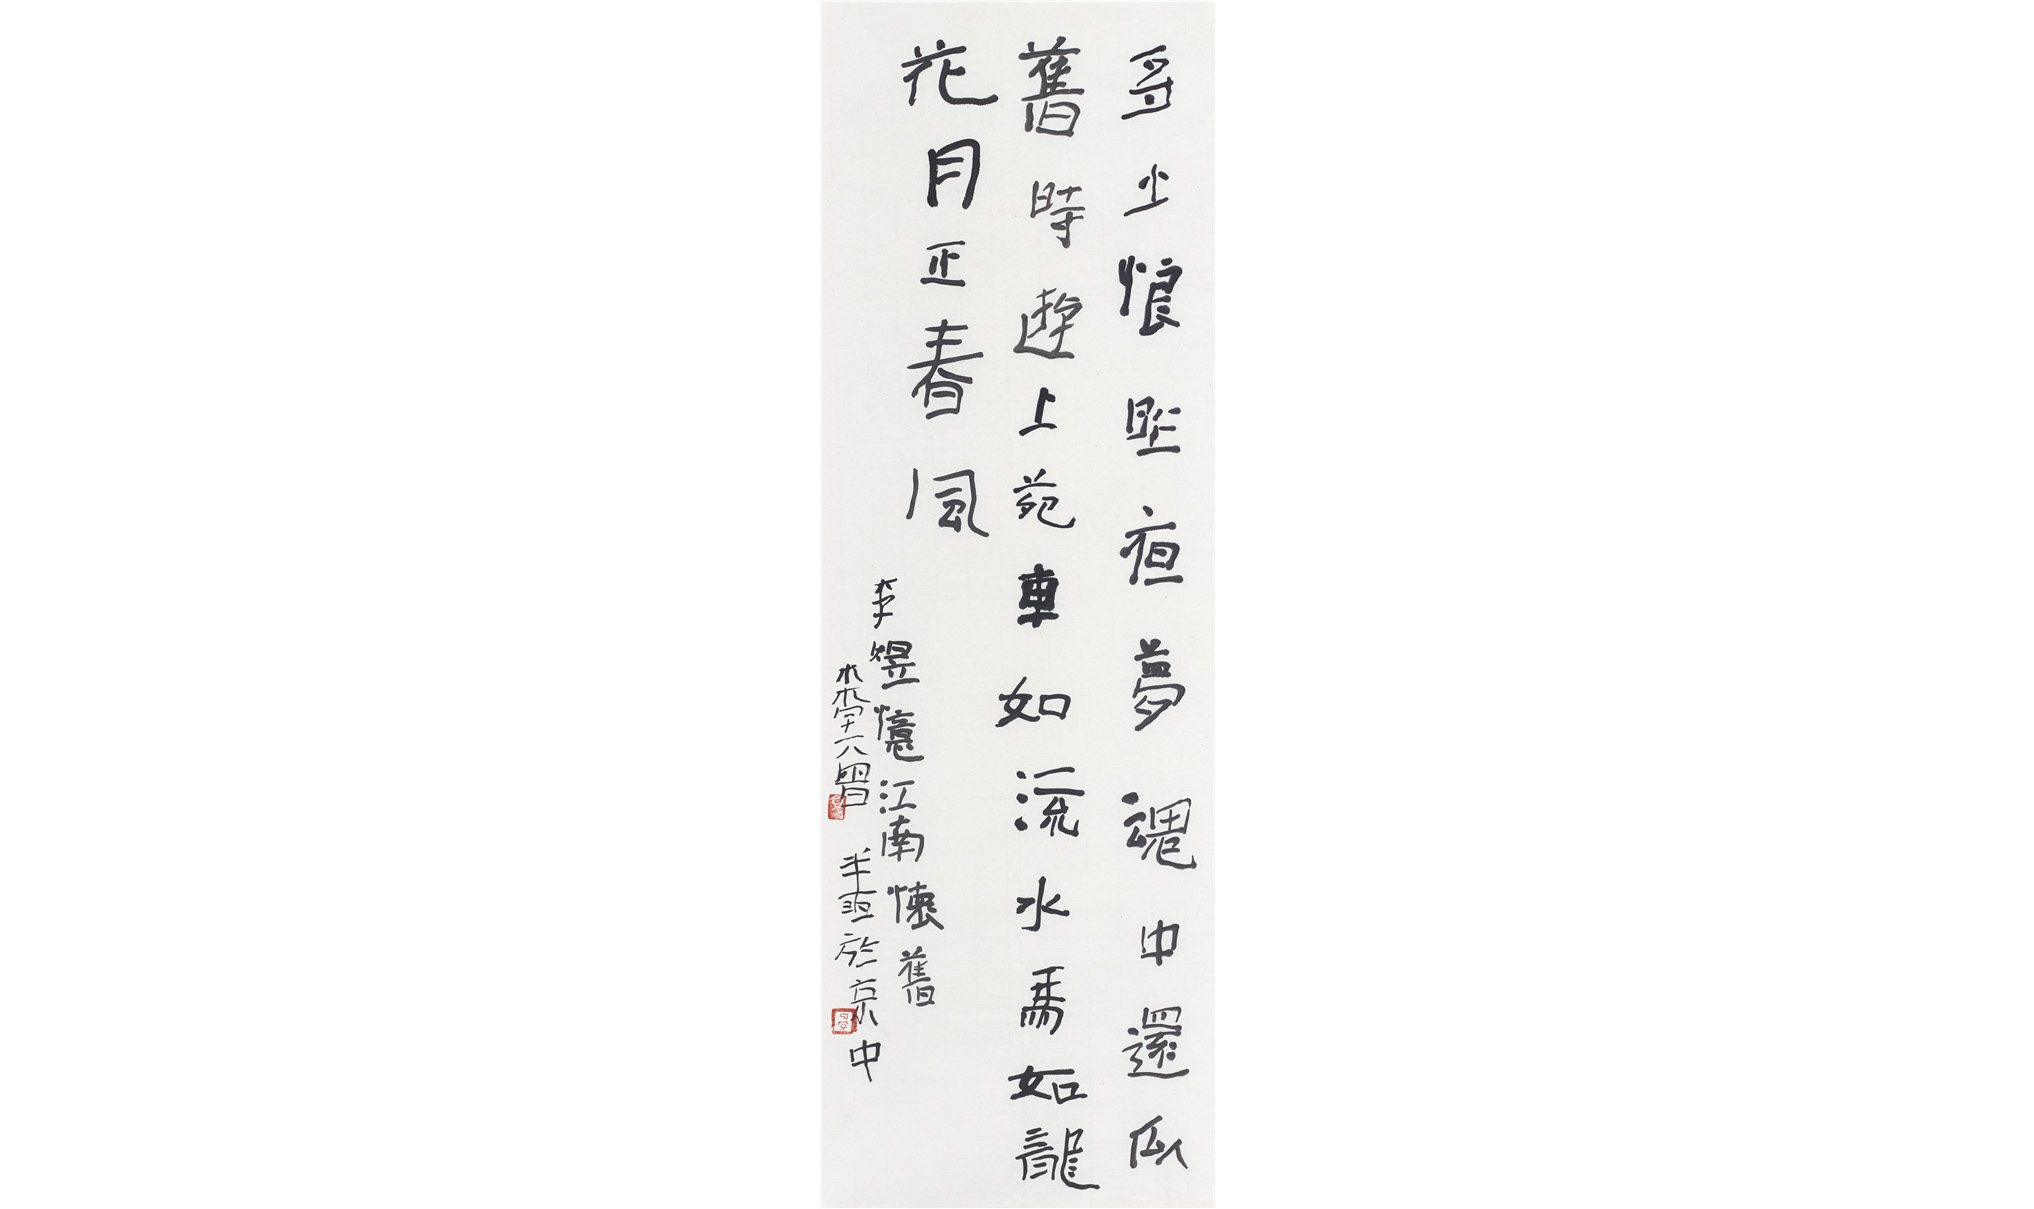 多少恨昨夜夢魂中還似
舊時遊上苑車如流水馬如龍
花月正春風
李煜憶江南懷舊
半亙於京中